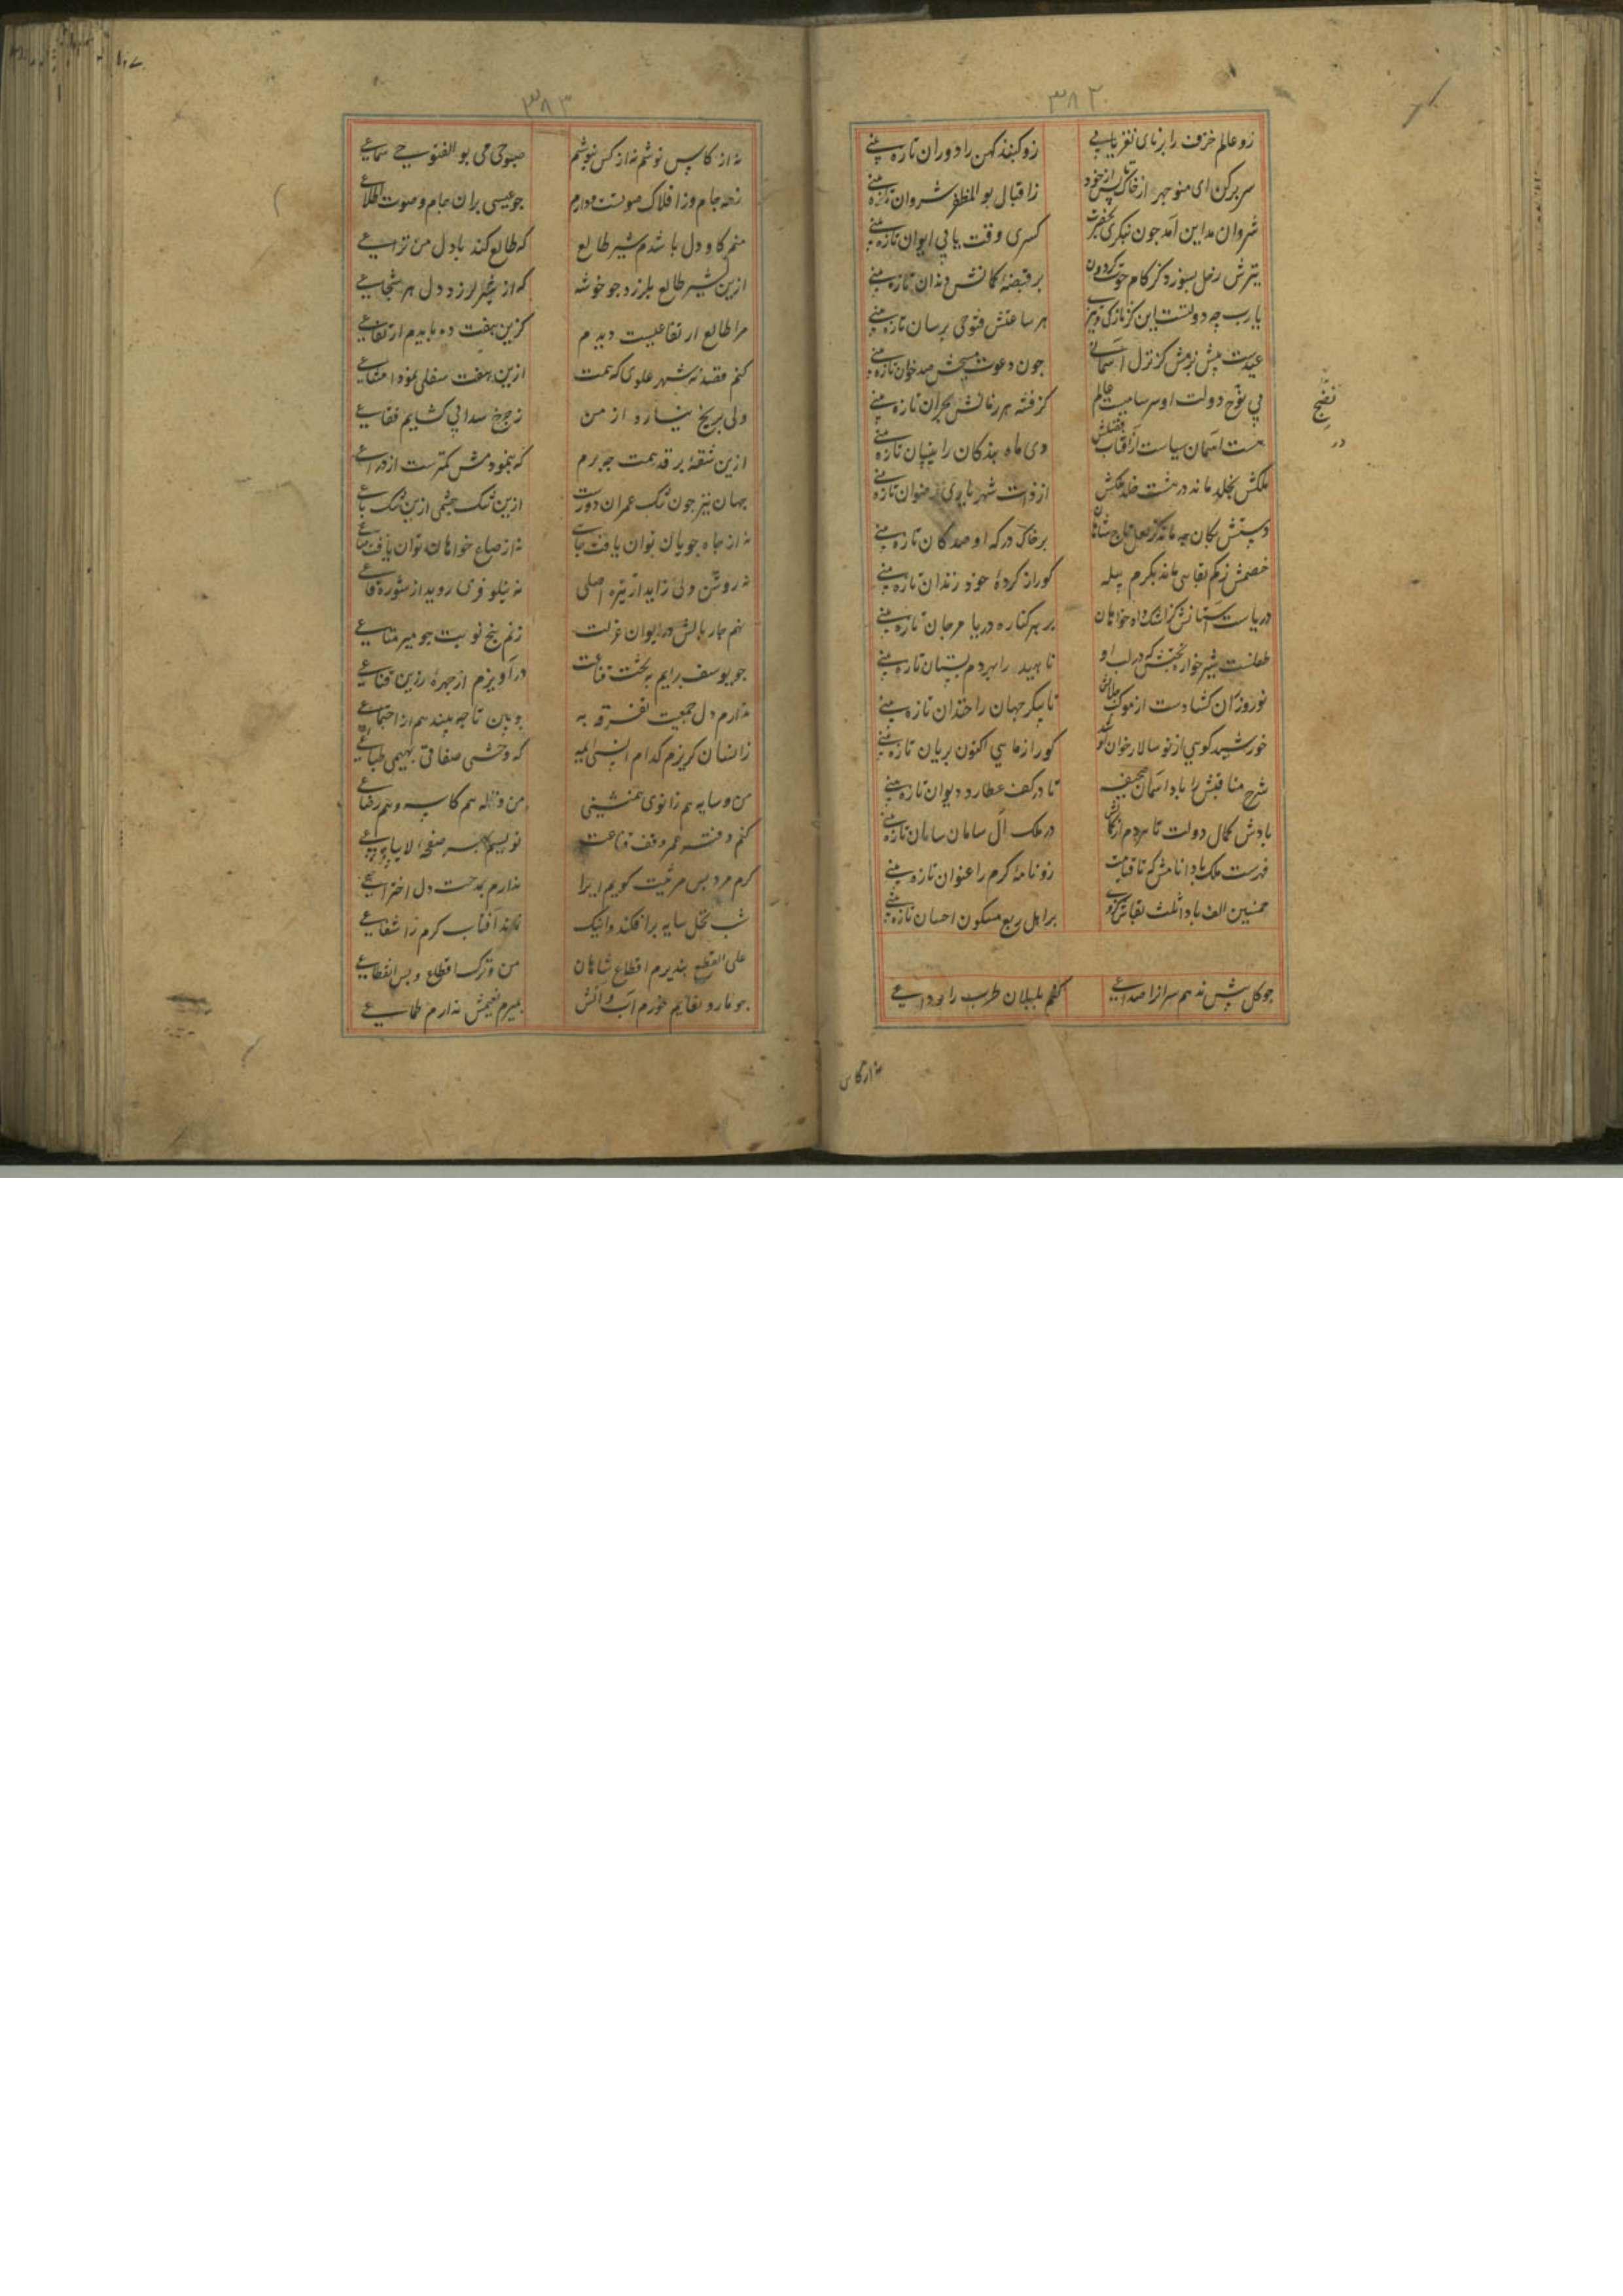 ٣٨٢
زو عالم خرف را برنای نغز یابی زو گنبذ کهن را دوران تازه بینی
سر برکن ای منوجهر از خاک تا پس از خود ز اقبال بو المظفر شروان تازه بینی
شروان مداین آمد جون بنکری بحضرت کسری وقت یابی ایوان تازه بینی
تیرش زحل بسوزد کز کام حوت گردون بر قبضهٔ کمانش دندان تازه بینی
یارب چه دولتست این کز تازکی و تیزی هر ساعتش فتوحی برسان تازه بینی
عیدست پیش بزمش کز نزل آسمانی جون دعوت مسیحش صد خوان تازه بینی
بی نوح دولت او سرسامیست عالم کز فتنه هر زمانش بحران تازه بینی
هست آسمان سیاست از آفتاب فضلش دی ماه بندکان را نیسان تازه بینی
ملکش بخلد ماند در هشت خلد ملکش از ذات شهریاری رضوان تازه بینی
دستش بکان چه ماند کز لعل تاج شاهان بر خاک درکه او صد کان تازه بینی
خصمش ز کم بقایی ماند بکرم پیله کورا ز کردهٔ خود زندان تازه بینی
دریاست آستانش کز اشک داد خواهان بر هر کناره دریا مرجان تازه بینی
طفلست شیرخواره بختش که در لب او ناهید را بهر دم پستان تازه بینی
نوروز از آن کشادست از موکب جلالش تا پیکر جهان را خندان تازه بینی
خورشید کویی از نو سالار خوان او شد کورا ز ماهی اکنون بریان تازه بینی
شرح مناقبش را باد آسمان صحیفه تا در کف عطارد دیوان تازه بینی
بادش کمال دولت تا هردم از کمالش در ملک آل سامان سامان تازه بینی
فهرست ملک بادا نامش که تا قیامت زو نامهٔ کرم را عنوان تازه بینی
همنین الف باد اثلث بقاش کز وی بر اهل ربع مسکون احسان تازه بینی
جو کل بیش ندهم سران را صداعی کنم بلبلان طرب را وداعی
نضج
در
نه از کاس
٣٨٣
نه از کاس نوشم نه از کس نیوشم صبوحی می بو الفتوحی سماعی
زحد جام وز افلاک صوتست دارم جو عیسی بران جام و صوت اطلاعی
منم کاو دل تا شدم شیر طالع که طالع کند با دل من نزاعی
ازین شیر طالع بلرزد جو خوشه که از شیر لرزد دل هر شجاعی
مرا طالع ارتفاعیست دیدم کزین هفت ده نایدم ارتفاعی
کنم قصد نه شهر علوی که همت ازین هفت سفلی نمود امتناعی
ولی بر یخ نیارد از من ز چرخ سدابی کشایم فقاعی
ازین شقه بر قد همت چه برم که پیمودمش کمترست از ذراعی
جهان نیز جون تنک عمران دورست ازین تنک چشمی ازین تنک باعی
نه از جاه جویان توان یافت جاهی نه از صاع خواهان توان یافت صاعی
نه روشن دلی زاید از تیره اصلی نه نیلوفری روید از شوره قاعی
نهم چار بالش در ایوان عزلت زنم پنج نوبت جو میر متاعی
جو یوسف برایم به تخت قناعت درآویزم از چهرهٔ زرین قناعی
ندارم دل جمعیت تفرقه به ببین تا چه بیند هم از اجتماعی
ز انسان کریزم کدام انس ایمه که وحشی صفاتی بهیمی طباعی
من و سایه هم زانوی همنشینی من و ناله هم کاسه و هم رضاعی
کنم دفتر عمر وقف قناعت نویسم بهر صفحهٔ لایباعی
کرم مرد پس مرثیت کویم ایرا ندارم بمدحت دل اختراعی
شب بخل سایه برافکند و اینک نماند آفتاب کرم را شعاعی
علی القطع نپذیرم اقطاع شاهان من و ترک اقطاع و پس انقطاعی
جو مار و نعایم خورم آب و آتش بمیرم نعیمش ندارم طماعی